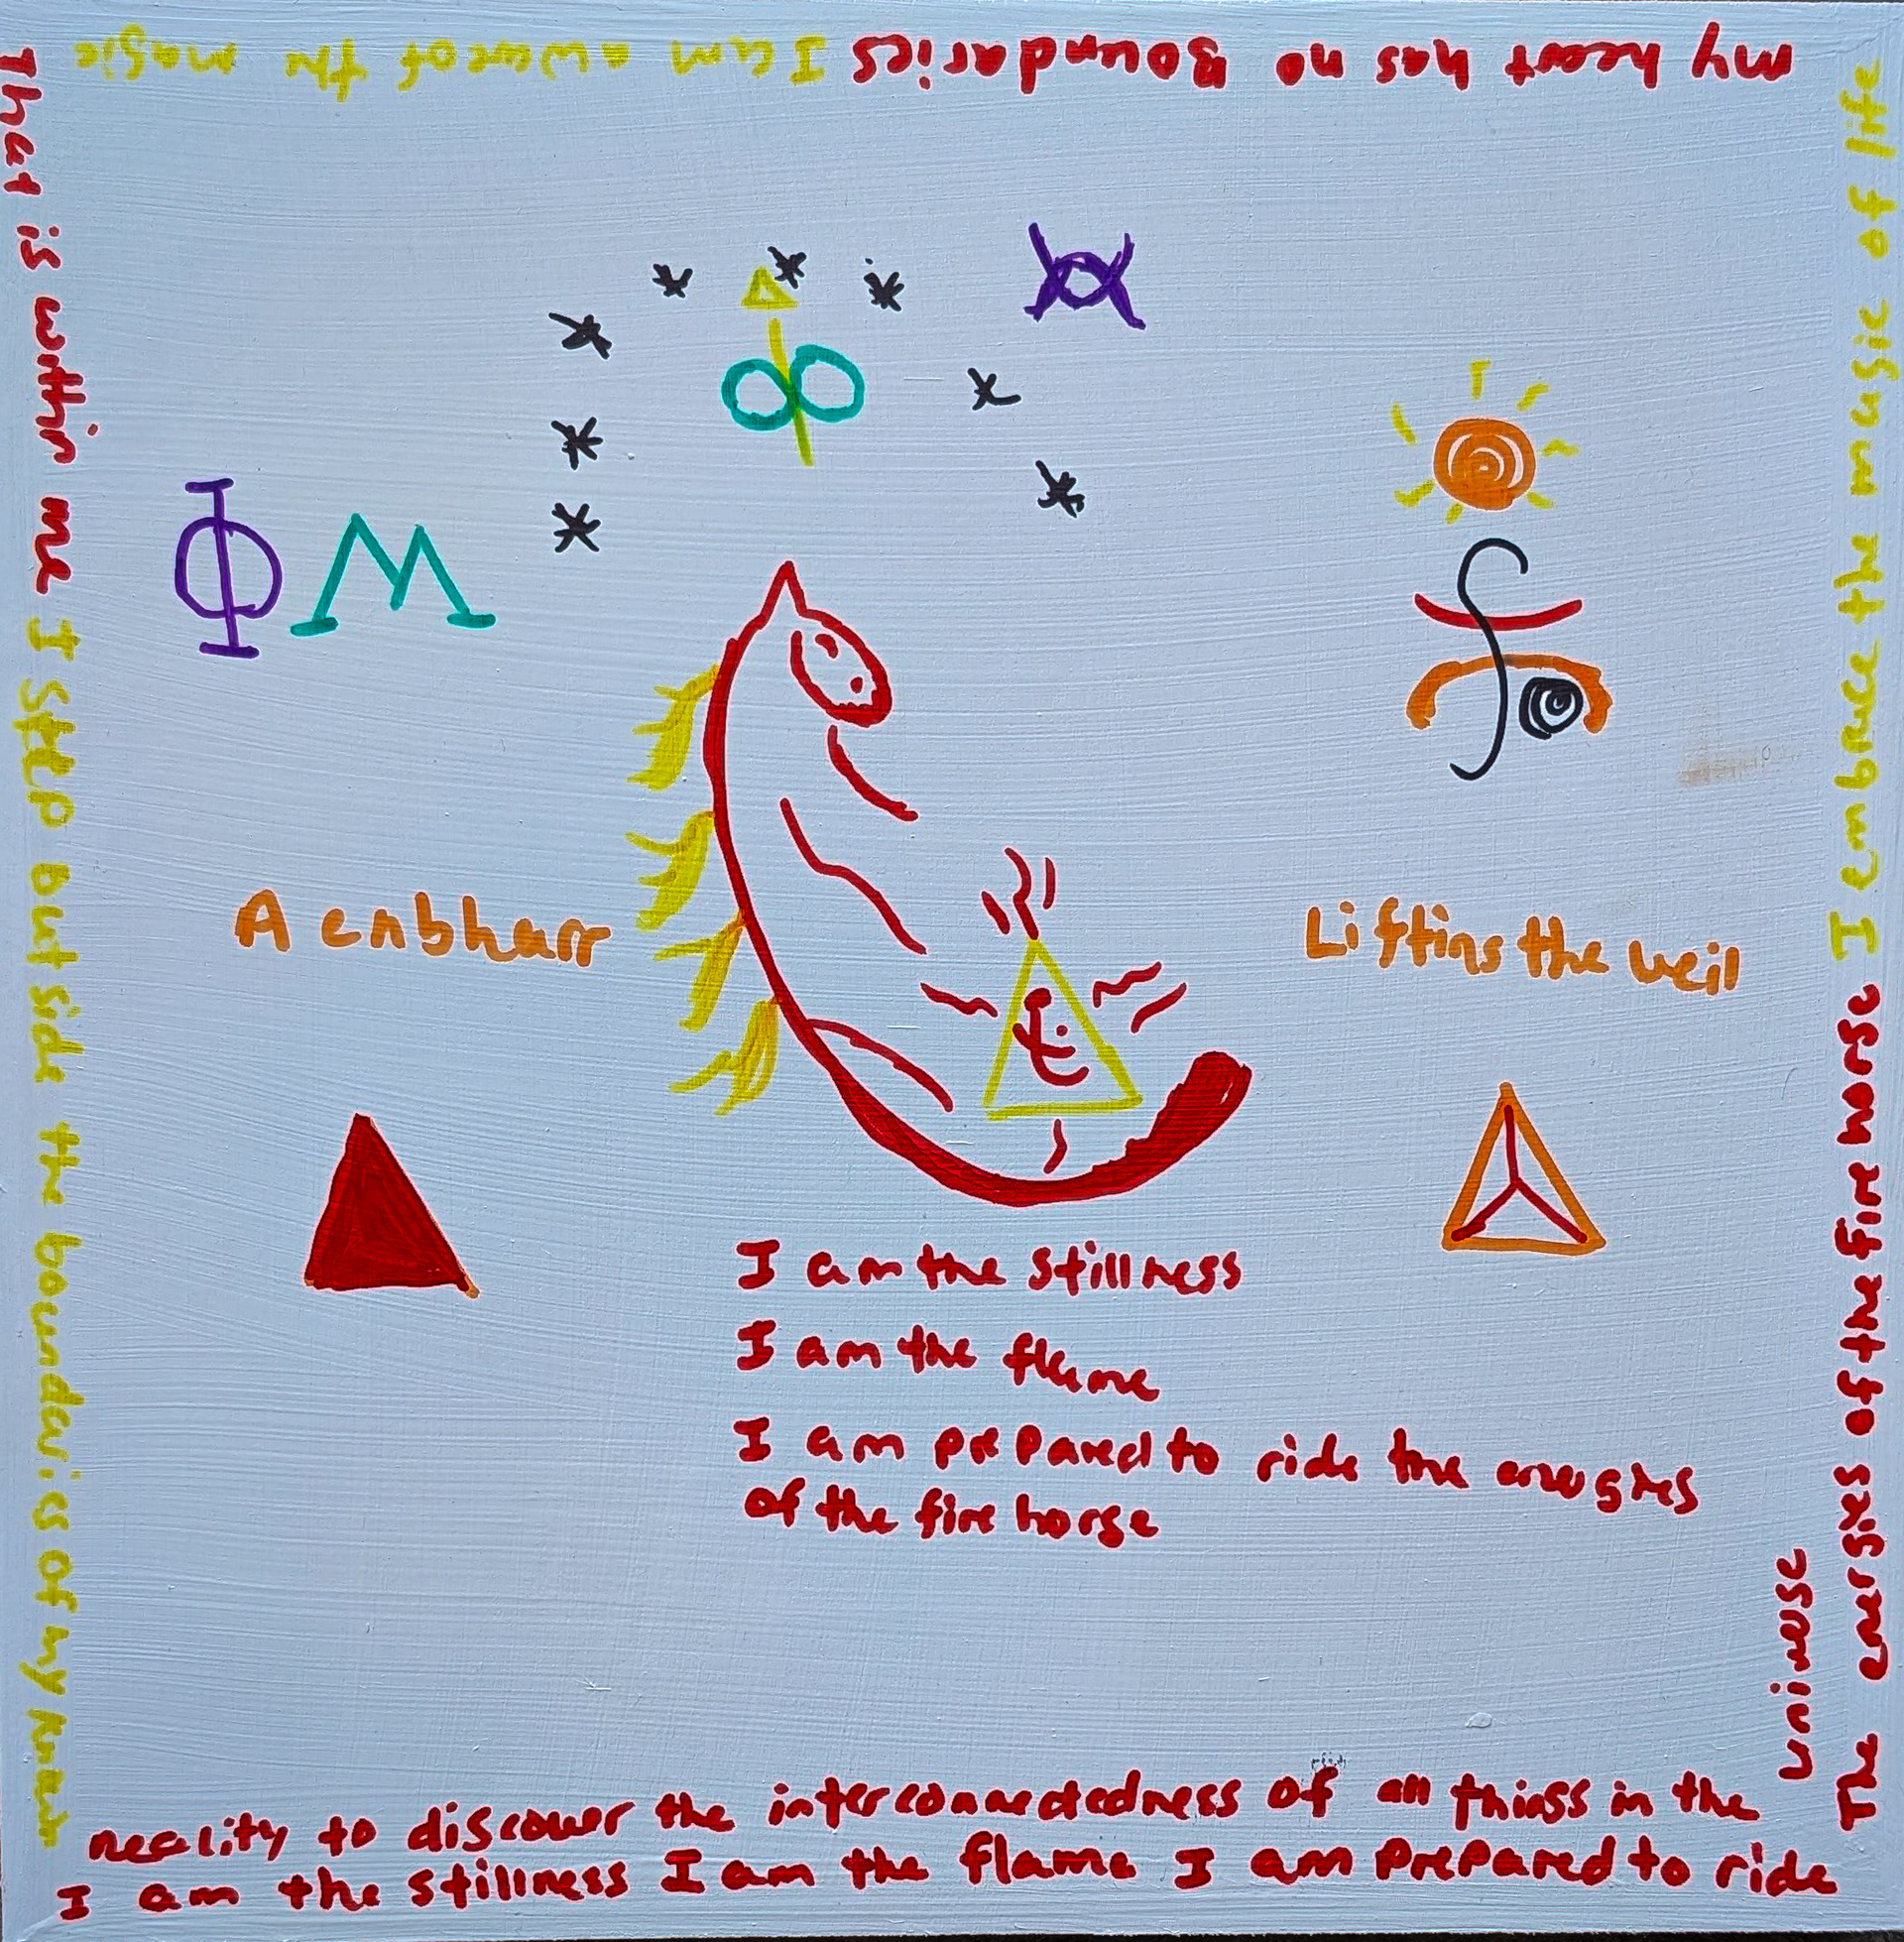 my heart has no Boundaries I am aware of the magic
That is within me I Step out side the boundaries of my known
ΦM
A enbharr
Lifting the veil
I am the stillness
I am the flame
I am prepared to ride the energies
of the fire horse
reality to discover the interconnectedness of all things in the
universe
I am the stillness I am the flame I am prepared to ride
The energies of the fire horse I embrace the magic of life